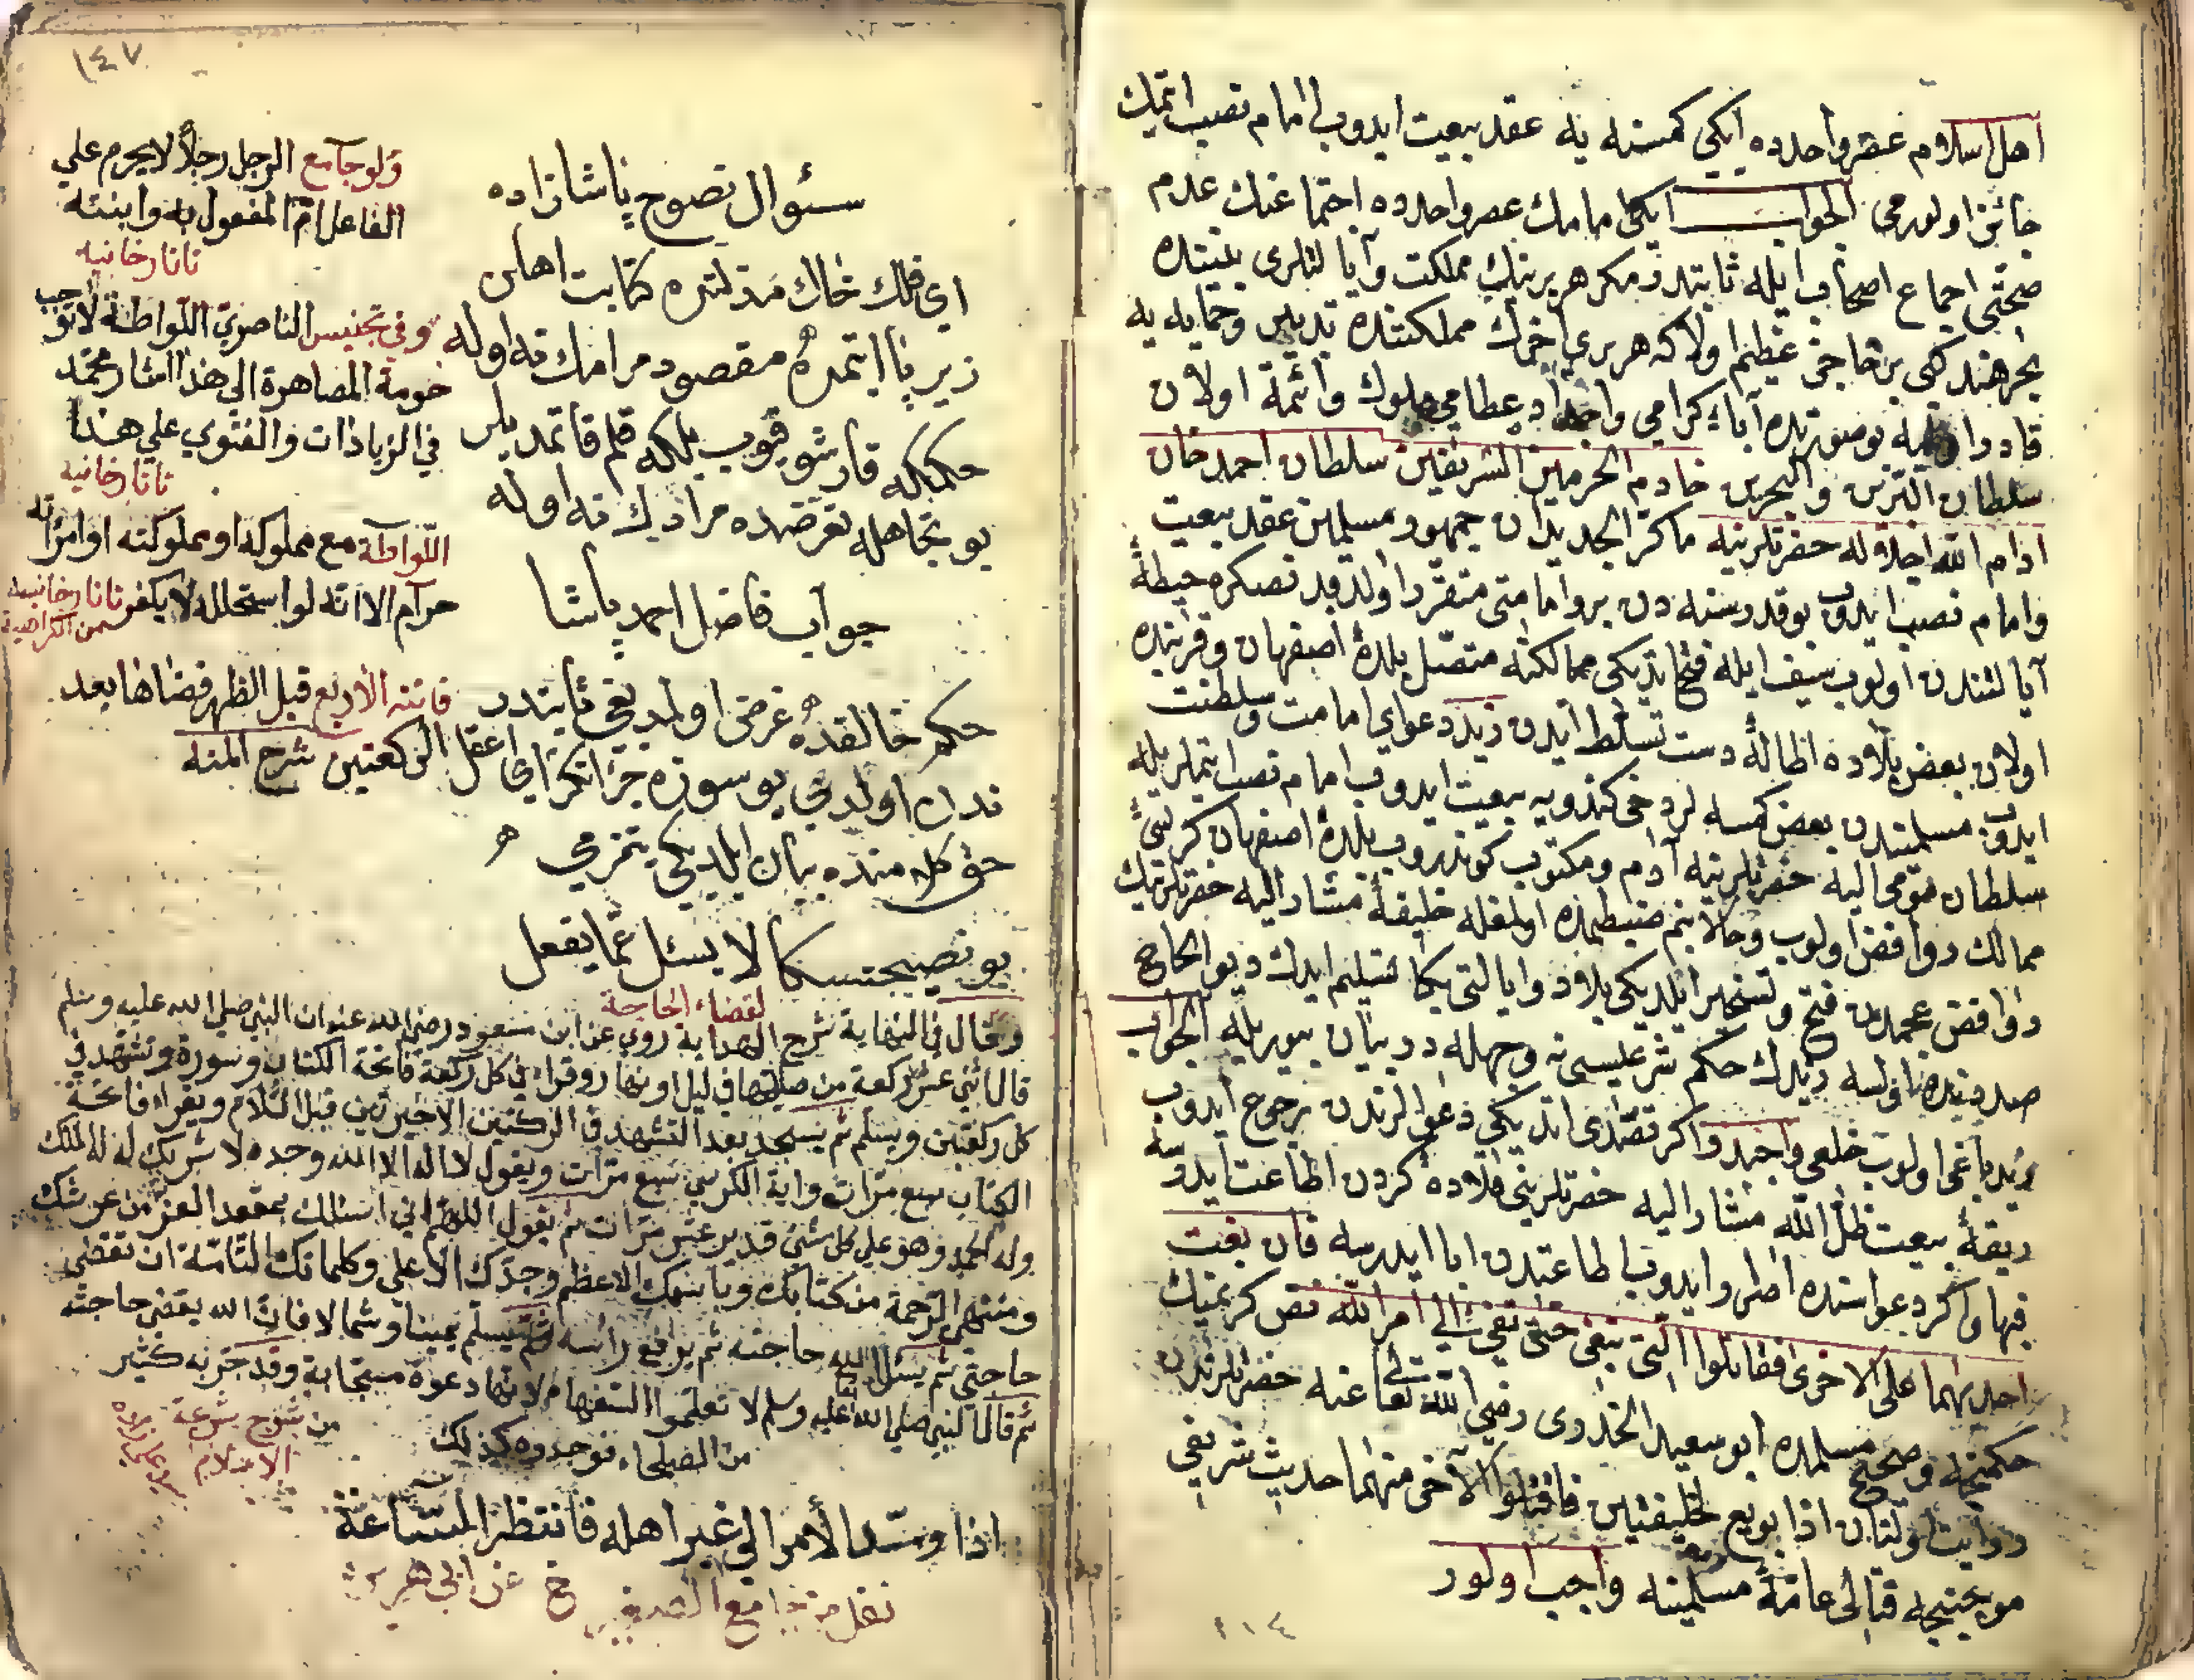 اهل اسلام عصر واحدده ایکی کمسنه یه عقد بیعت ایدوب امام نصب اتمك
جائز اولورمی الجواب ایکی امامك عصر واحدده اجتماعنك عدم
صحتی اجماع اصحاب ایله ثابتدر مکر هر برینك مملکت وایالتلری بیننده
بحر هند کبی بر حاجز عظیم اولا که هر بری آخرك مملکتنده تدبیر وحمایه یه
قادر اولمیه بو صورتده آباء کرامی واجداد عظامی ملوك وائمه اولان
سلطان البرین والبحرین خادم الحرمین الشریفین سلطان احمد خان
ادام الله اجلاله حضرتلرینه ما کر الجدیدان جمهور مسلمین عقد بیعت
وامام نصب ایدوب بوقدر سنه دن برو امامتی متقرر اولدقدنصکره حیطهٔ
ایالتندن اولوب سیف ایله فتح ایتدیکی ممالکنه متصل بلدهٔ اصفهان وقربنده
اولان بعض بلاده اطالهٔ دست تسلط ایدن زید دعوای امامت وسلطنت
ایدوب مسلمیندن بعض کمسه لردخی کندویه بیعت ایدوب امام نصب ایتملریله
سلطان مومی الیه حضرتلرینه آدم ومکتوب کوندروب بلدهٔ اصفهان کرسئ
ممالك روافض اولوب وحالا بنم ضبطمده اولمغله خلیفهٔ مشار الیه حضرتلرینك
روافض عجمدن فتح وتسخیر ایلدیکی بلاد وایالتی بکا تسلیم ایدك دیو الحاح
صددنده اولسه زیدك حکم شرعیسی نه وجهله در بیان بیوریله الجواب
زید باغی اولوب خلعی واجبدر اکر تصدی ایتدیکی دعوالرندن رجوع ایدوب
ربقهٔ بیعت ظل الله مشار الیه حضرتلرینی قلادهٔ کردن اطاعت ایدرسه
فبها واکر دعواسنده اصرار ایدوب اطاعتدن ابا ایدرسه فان بغت
احدیهما علی الاخری فقاتلوا التی تبغی حتی تفیئ الی امر الله نص کریمنك
حکمیله وصحیح مسلمده ابو سعید الخدری رضی الله تعالی عنه حضرتلرندن
روایت اولنان اذا بویع لخلیفتین فاقتلوا الآخر منهما حدیث شریفی
موجبنجه قتالی عامهٔ مسلمینه واجب اولور
١٤٧
سئوال نصوح پاشازاده
ای فلك خاك مذلتده کتابت اهلن
زیر پا ایتمده مقصود مرامك نه اوله
حکمکله قارشو قیوب بلکه قلم قاتمدیلر
بو تجاهله تعرضده مرادك نه اوله
جواب فاضل احمد پاشا
حکمر خالقده غرض اولمدیغی ثابتدر
ندن اولدی بو سوزه جرأتکز ای اعقل
حق کلامنده بیان ایلدیکی یتمزمی
بو نصیحت سکا لا یسئل عما یفعل
ولو جامع الرجل رجلا لا یحرم علی
الفاعل ام المفعول به وابنته
تاتارخانیه
وفی تجنیس الناصری اللواطة لا توجب
حرمة المصاهرة الی هذا اشار محمد
فی الزیادات والفتوی علی هذا
تاتارخانیه
اللواطة مع مملوکه او مملوکته او امرأته
حرام الا انه لو استحلله لا یکفر تاتارخانیه
من الکراهیة
فاتته الاربع قبل الظهر قضاها بعد
الرکعتین شرح المنیه
لقضاء الحاجة
وقال فی النهایة شرح الهدایة روی عن ابن مسعود رضی الله عنه ان النبی صلی الله علیه وسلم
قال اثنی عشر رکعة من صلیها فی لیل او نهار وقراء فی کل رکعة فاتحة الکتاب وسورة وتشهد فی
کل رکعتین ویسلم ثم یسجد بعد التشهد فی الرکعتین الاخیرتین قبل السلام ویقراء فاتحة
الکتاب سبع مرات وایة الکرسی سبع مرات ویقول لا اله الا الله وحده لا شریك له له الملك
وله الحمد وهو علی کل شئ قدیر عشر مرات ثم یقول اللهم انی اسئلك بمعقد العز من عرشك
ومنتهی الرحمة من کتابك وباسمك الاعظم وجدك الاعلی وکلماتك التامة ان تقضی
حاجتی ثم یسئل الله حاجته ثم یرفع راسه ثم یسلم یمینا وشمالا فان الله یقضی حاجته
ثم قال النبی صلی الله علیه وسلم لا تعلموا السفهاء لانها دعوة مستجابة وقد جربه کثیر
من الصلحاء فوجدوه کذلك
من شرح شرعة الاسلام
اذا وسد الأمر الی غیر اهله فانتظر الساعة
نقل من جامع الصغیر خ عن ابی هریرة